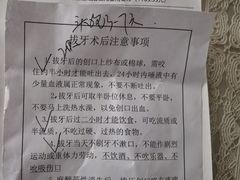 拔牙术后注意事项
1、拔牙后的创口上纱布或棉球，需咬
住约半小时才能吐出去。24小时内唾液中有
少量血液属正常现象，不要不断吐。
2、拔牙后可取半卧位休息，不要平卧，
不要马上洗热水澡，以免创口出血。
3、拔牙后过二小时才能饮食，可吃流质或
半流质，不吃过硬、过热的食物。
4、拔牙当天不刷牙不漱口，不能作剧烈
运动或重体力劳动，不饮酒，不吹乐器，不
吮吸伤口